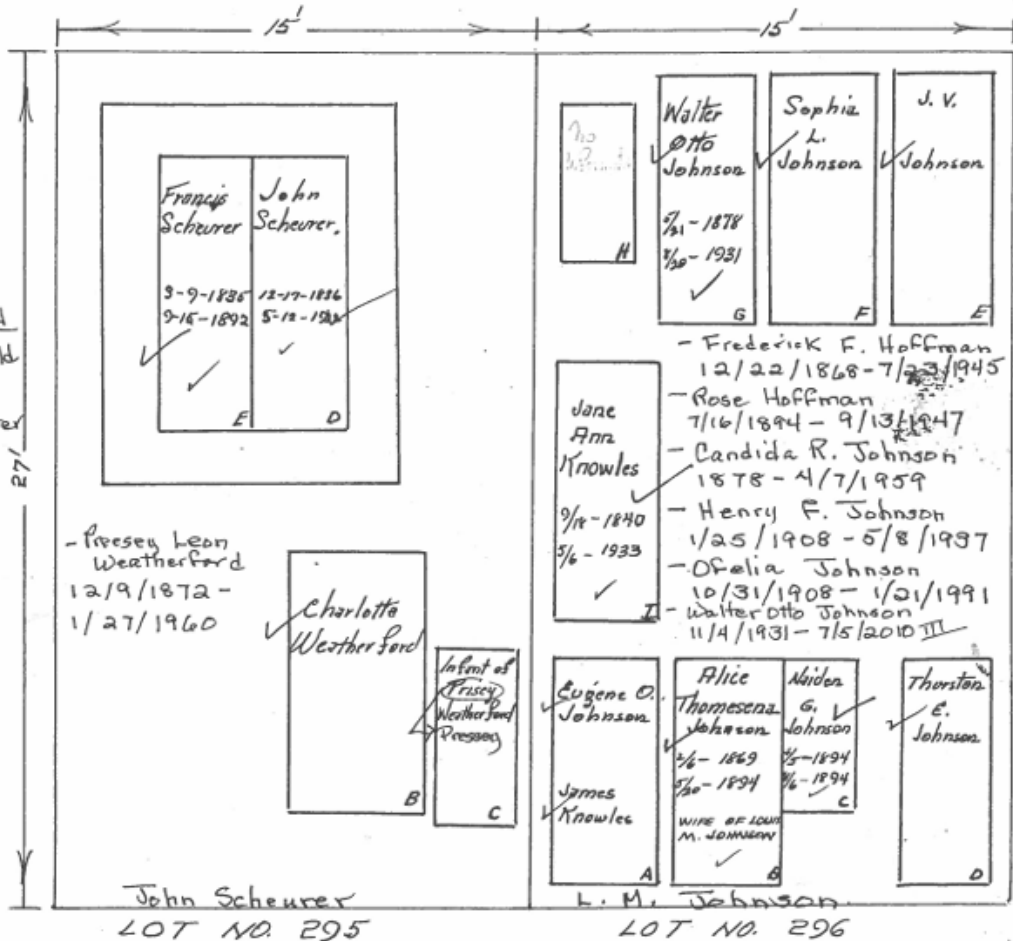 15'
15'
27'
Francis
Scheurer
3-9-1835
9-15-1892
E
John
Scheurer.
12-17-1836
5-12-
D
- Pressey Leon
Weatherford
12/9/1872 -
1/27/1960
Charlotte
Weatherford
B
Infant of
Prisey
Weatherford
Pressey
C
John Scheurer
LOT NO. 295
No
H
Walter
Otto
Johnson
5/31 - 1878
- 1931
G
Sophia
L.
Johnson
F
J. V.
Johnson
E
Jane
Ann
Knowles
9/18 - 1840
5/6 - 1933
I
- Frederick F. Hoffman
12/22/1868 - 7/23/1945
- Rose Hoffman
7/16/1894 - 9/13/1947
- Candida R. Johnson
1878 - 4/7/1959
- Henry F. Johnson
1/25/1908 - 5/8/1937
- Ofelia Johnson
10/31/1908 - 1/21/1991
- Walter Otto Johnson
11/4/1931 - 7/5/2010 III
Eugene O.
Johnson
James
Knowles
A
Alice
Thomesena
Johnson
2/6 - 1869
5/20 - 1894
WIFE OF LOUIS
M. JOHNSON
B
Naiden
G.
Johnson
- 1894
- 1894
C
Thorston
E.
Johnson
D
L. M. Johnson
LOT NO. 296